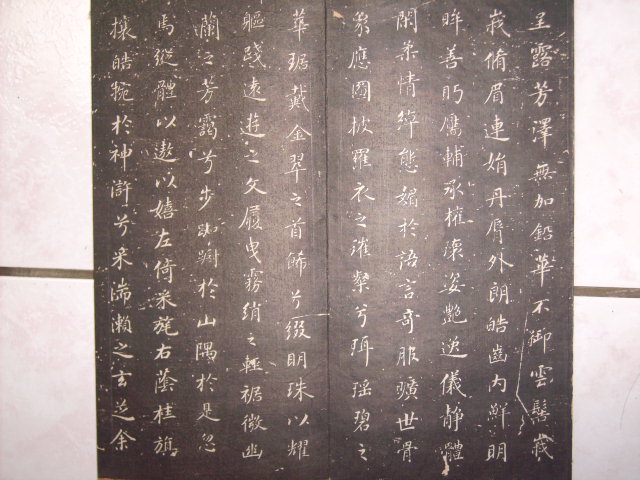 呈露芳澤無加鉛華不御雲髻峩
峩脩眉連娟丹脣外朗皓齒內鮮明
眸善眄靨輔承權瓌姿艷逸儀靜體
閑柔情綽態媚於語言奇服曠世骨
象應圖披羅衣之璀粲兮珥瑤碧之
華琚戴金翠之首飾兮綴明珠以耀
軀踐遠遊之文履曳霧綃之輕裾微幽
蘭之芳藹兮步踟躕於山隅於是忽
焉縱體以遨以嬉左倚采旄右蔭桂旗
攘皓腕於神滸兮采湍瀨之玄芝余